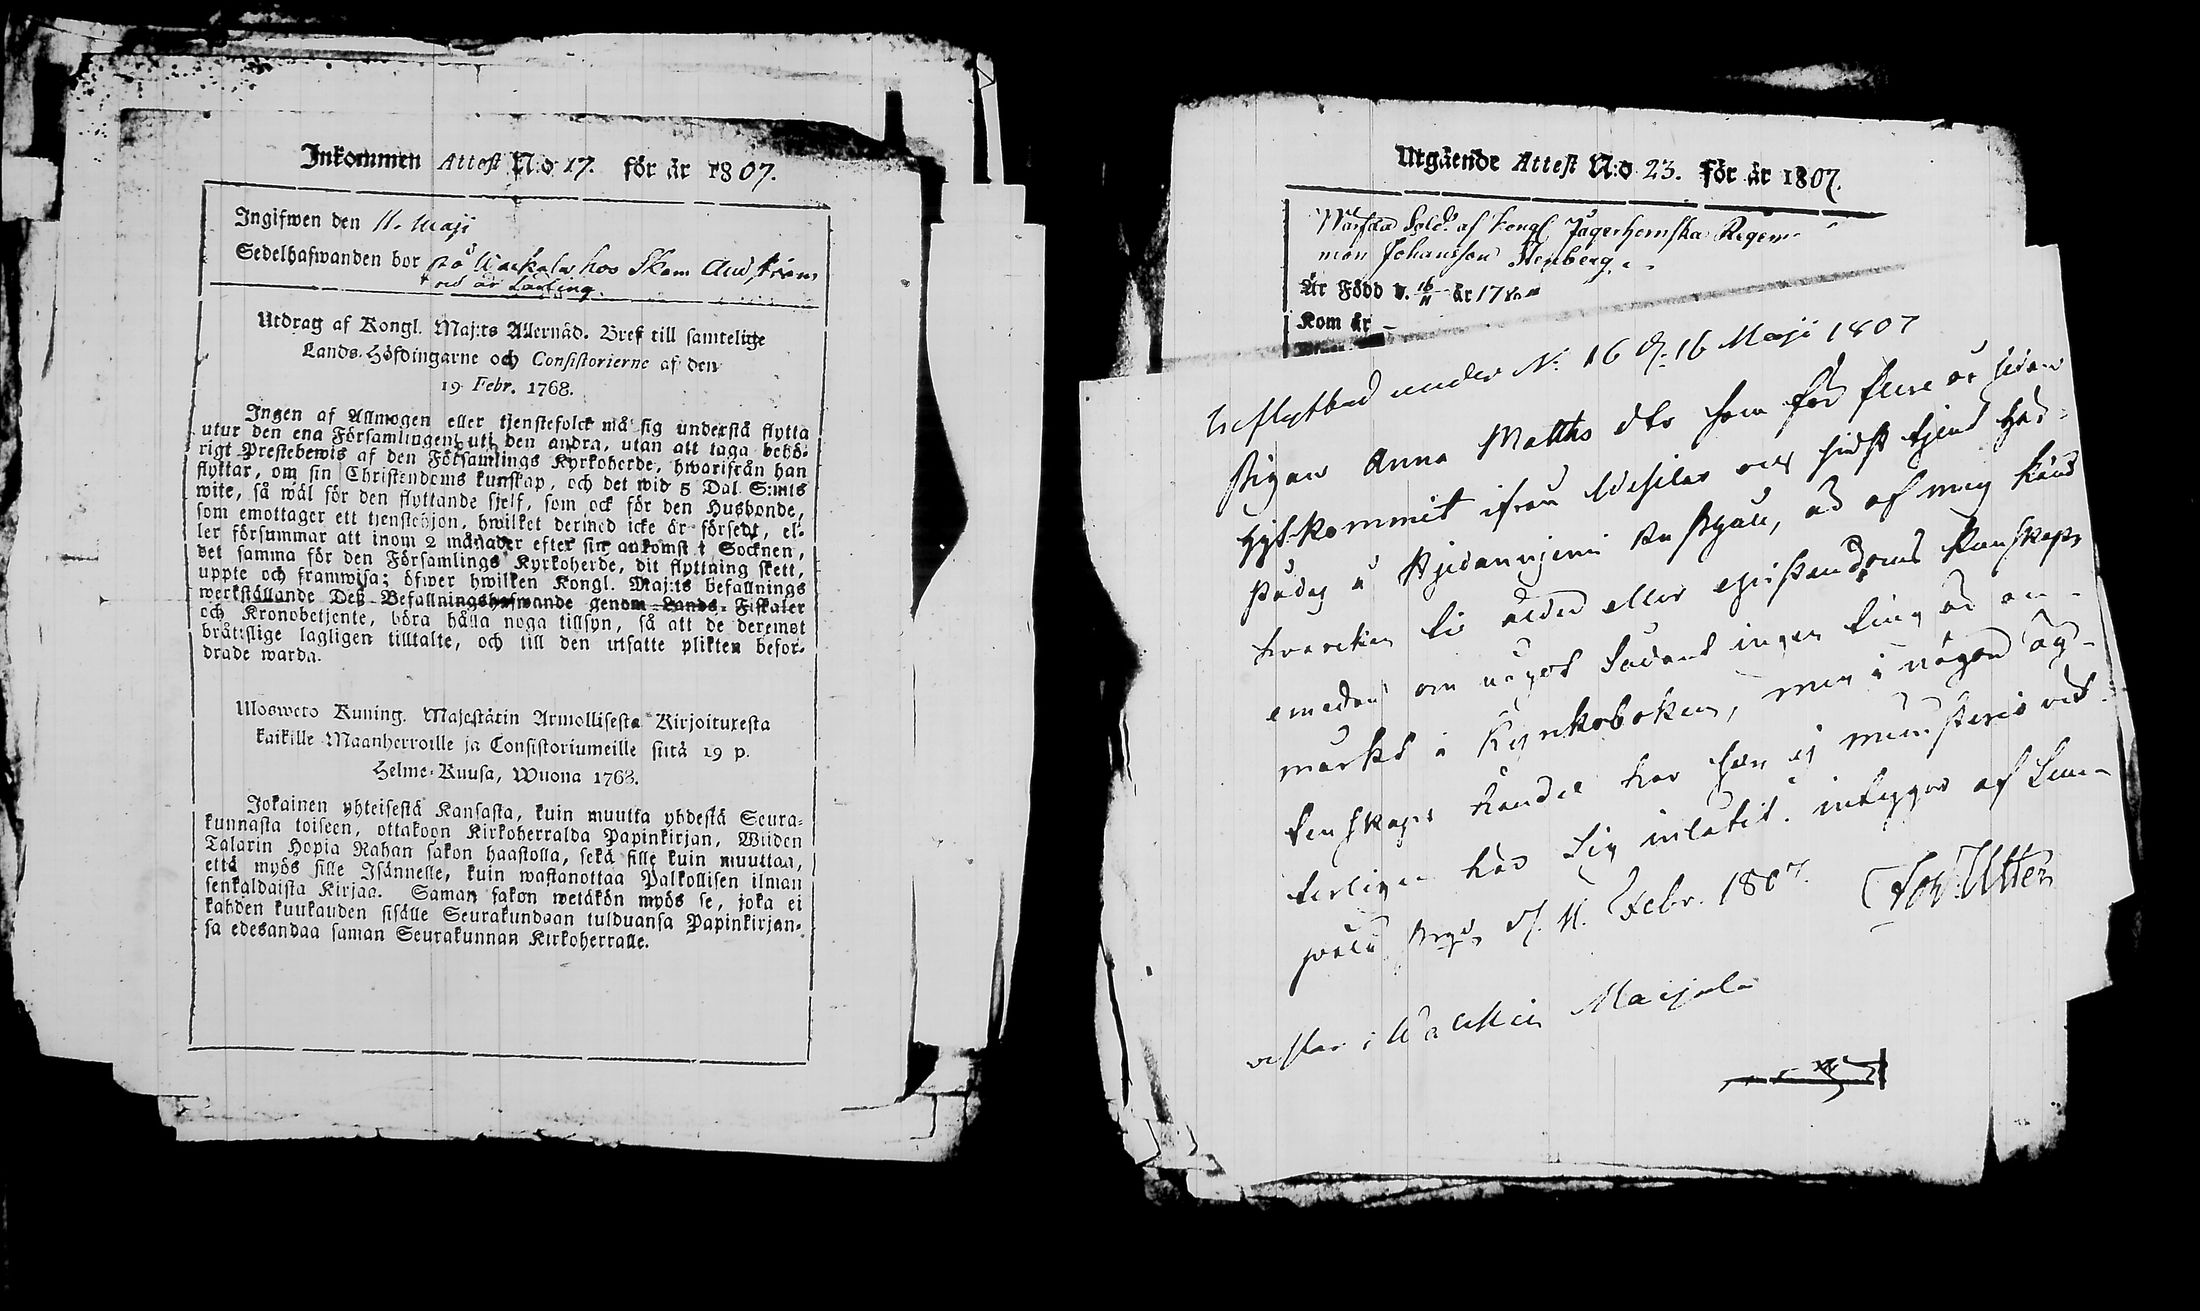 Inkommen Attest N:o 17. för år 1807.
Ingifwen den 11. Maji
Sedelhafwanden bor på hos
och är
Utdrag af Kongl. Maj:ts Allernåd. Bref till samtelige
Lands-Höfdingarne och Consistorierne af den
19 Febr. 1768.
Ingen af Allmogen eller tjenstefolck må sig understå flytta
utur den ena Församlingen uti den andra, utan att taga behö-
rigt Prestebewis af den Församlings Kyrkoherde, hwarifrån han
flyttar, om sin Christendoms kunskap, och det wid 5 Dal. S:mts
wite, så wäl för den flyttande sjelf, som ock för den Husbonde,
som emottager ett tjenstehjon, hwilket dermed icke är försedt, el-
ler försummar att inom 2 månader efter sin ankomst i Socknen,
det samma för den Församlings Kyrkoherde, dit flyttning skett,
uppte och framwisa; öfwer hwilken Kongl. Maj:ts befallnings
werkställande Deß Befallningshafwande genom Lands-Fiskaler
och Kronobetjente, böra hålla noga tillsyn, så att de deremot
bråttslige lagligen tilltalte, och till den utsatte plikten befor-
drade warda.
Ulosweto Kuning. Majestätin Armollisesta Kirjoituxesta
kaikille Maanherroille ja Consistoriumeille siitä 19 p.
Helme-Kuusa, Wuona 1768.
Jokainen yhteisestä Kansasta, kuin muutta yhdestä Seura-
kunnasta toiseen, ottakoon Kirkoherralda Papinkirjan, Wiiden
Talarin Hopia Rahan sakon haastolla, sekä sille kuin muuttaa,
että myös sille Isännelle, kuin wastanottaa Palkollisen ilman
senkaldaista Kirjaa. Saman sakon wetäkön myös se, joka ei
kahden kuukauden sisälle Seurakundaan tulduansa Papinkirjan-
sa edesandaa saman Seurakunnan Kirkoherralle.
Utgående Attest N:o 23. för år 1807.
Wärfda Sold. af Kongl. Jägerhornska Regem
Johansson Stenberg
Är Född d. 16/11 år 17
Kom år
Inflyttad under N: 16 d. 16 Maji 1807
Pigan Anna Matths dtr som för flere år sedan
hyt kommit ifrån och sidst tjent
på, är af mig känd
hvarken til ålder eller christendoms kunskap
emedan om något sådant ingen ting är an-
märkt i Kyrkoboken, men i någon äg-
tenskaps handel har hon ej
terligen här sig inlåtit. intygar af
d. 11. Febr. 1807. Joh: Utter